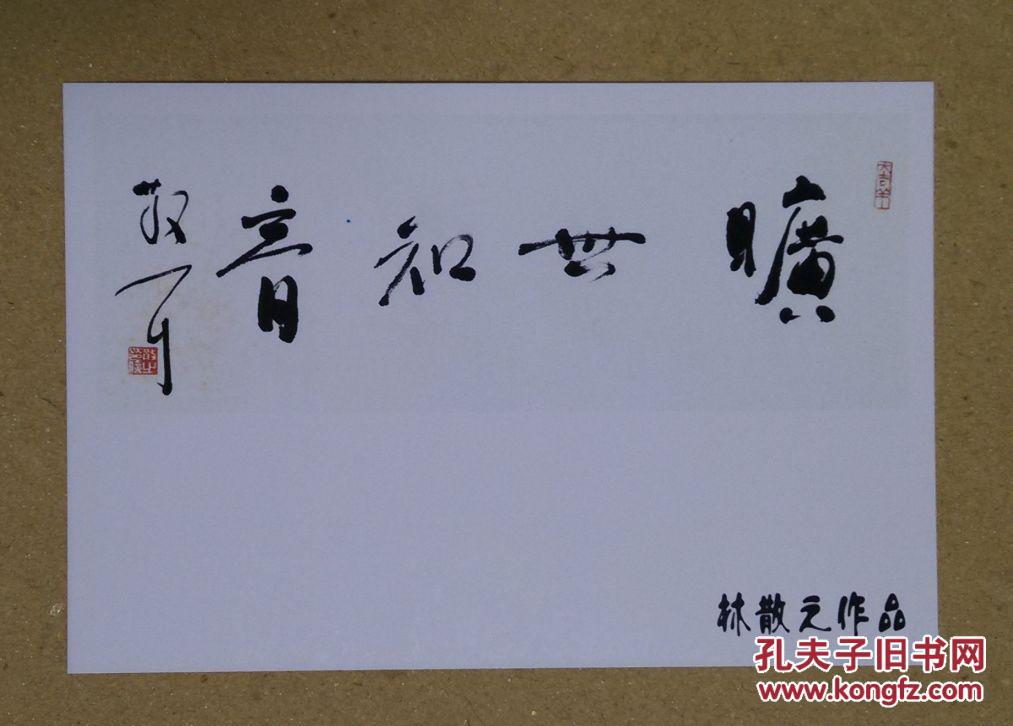 曠世知音
散耳
林散之作品
孔夫子旧书网
www.kongfz.com